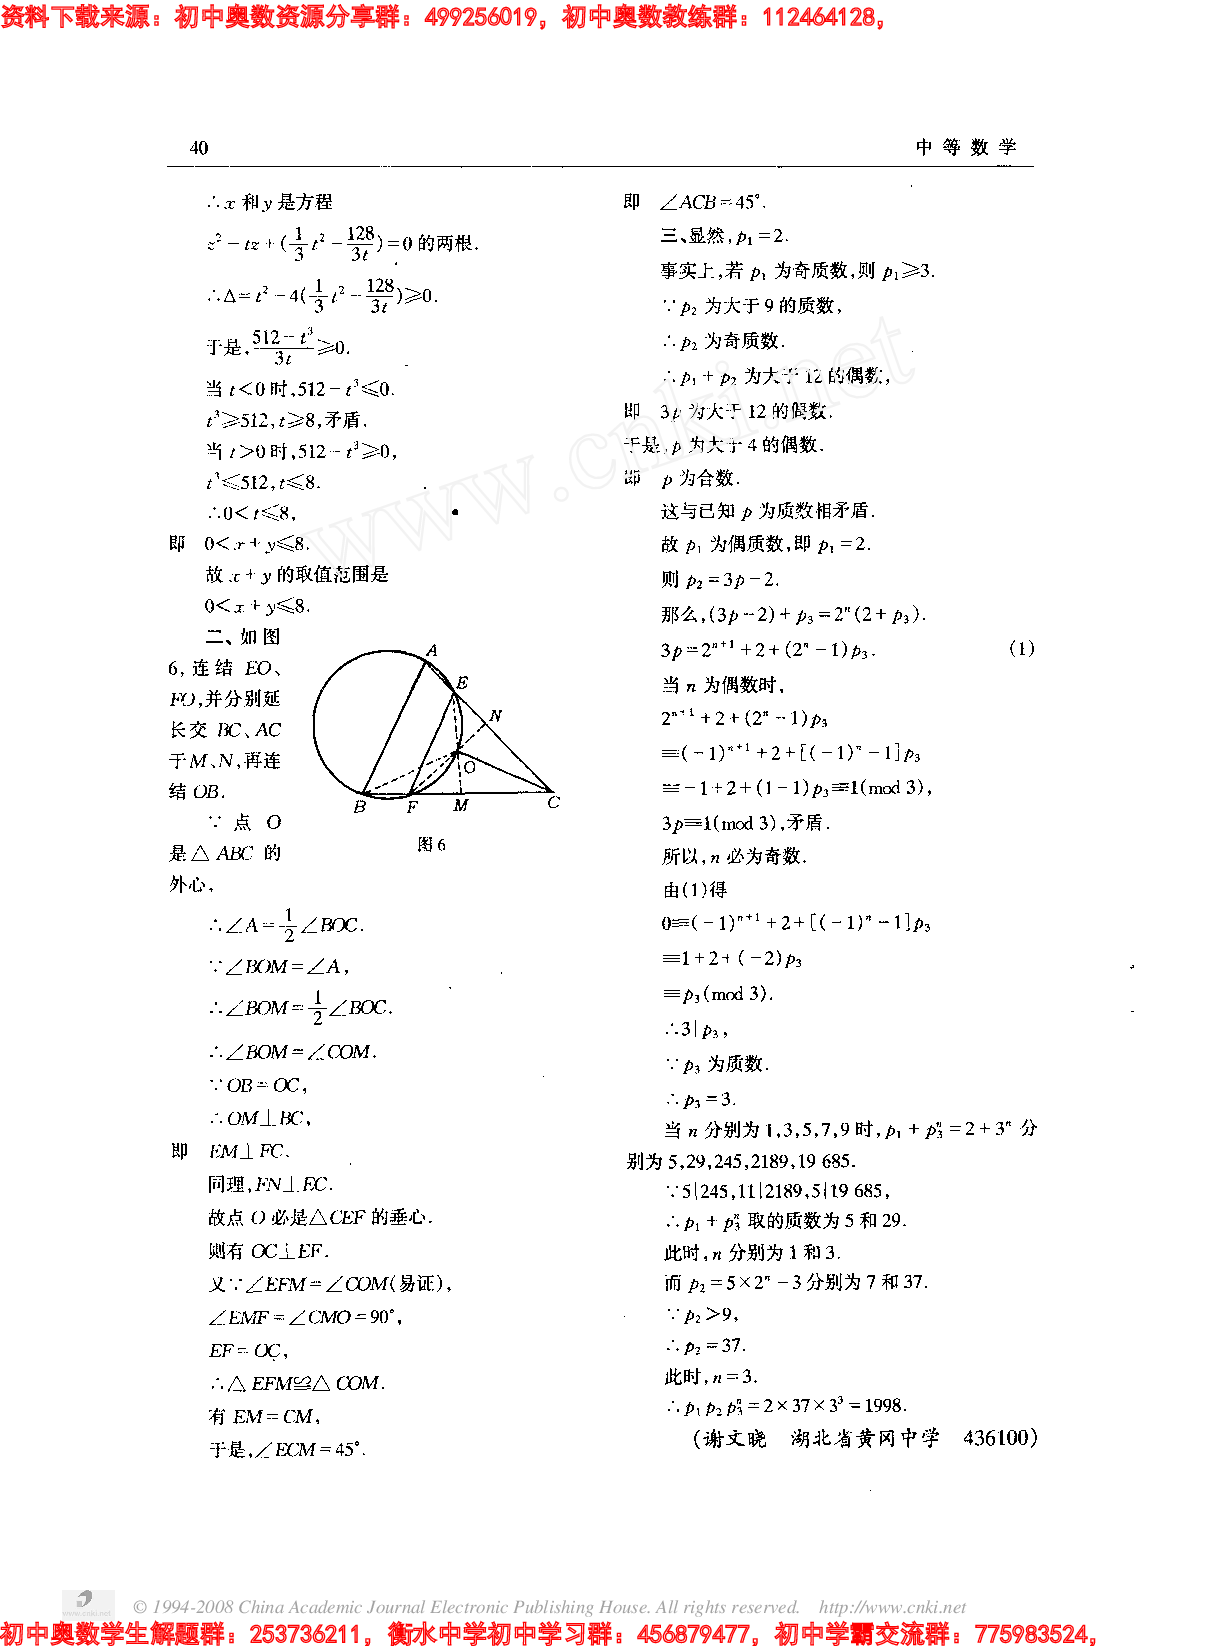 资料下载来源：初中奥数资源分享群：499256019，初中奥数教练群：112464128，
40
中 等 数 学
∴x 和 y 是方程
z² − tz + (1/3 t² − 128/3t) = 0 的两根.
∴Δ = t² − 4(1/3 t² − 128/3t) ≥ 0.
于是, (512 − t³)/3t ≥ 0.
当 t<0 时,512 − t³ ≤ 0.
t³ ≥ 512, t ≥ 8,矛盾.
当 t>0 时,512 − t³ ≥ 0,
t³ ≤ 512, t ≤ 8.
∴0 < t ≤ 8,
即 0 < x + y ≤ 8.
故 x + y 的取值范围是
0 < x + y ≤ 8.
二、如图
6, 连结 EO、
FO,并分别延
长交 BC、AC
于 M、N,再连
结 OB.
∵ 点 O
是 △ ABC 的
外心,
A
E
N
O
B
F
M
C
图 6
∴∠A = 1/2 ∠BOC.
∵∠BOM = ∠A,
∴∠BOM = 1/2 ∠BOC.
∴∠BOM = ∠COM.
∵OB = OC,
∴OM⊥BC,
即 EM⊥FC.
同理,FN⊥EC.
故点 O 必是△CEF 的垂心.
则有 OC⊥EF.
又∵∠EFM = ∠COM(易证),
∠EMF = ∠CMO = 90°,
EF = OC,
∴△ EFM≌△ COM.
有 EM = CM,
于是,∠ECM = 45°.
即 ∠ACB = 45°.
三、显然, p₁ = 2.
事实上,若 p₁ 为奇质数,则 p₁ ≥ 3.
∵ p₂ 为大于 9 的质数,
∴ p₂ 为奇质数.
∴ p₁ + p₂ 为大于 12 的偶数,
即 3p 为大于 12 的偶数.
于是, p 为大于 4 的偶数.
即 p 为合数.
这与已知 p 为质数相矛盾.
故 p₁ 为偶质数,即 p₁ = 2.
则 p₂ = 3p − 2.
那么,(3p − 2) + p₃ = 2ⁿ(2 + p₃).
3p = 2ⁿ⁺¹ + 2 + (2ⁿ − 1)p₃. (1)
当 n 为偶数时,
2ⁿ⁺¹ + 2 + (2ⁿ − 1)p₃
≡ (−1)ⁿ⁺¹ + 2 + [(−1)ⁿ − 1]p₃
≡ −1 + 2 + (1 − 1)p₃ ≡ 1(mod 3),
3p ≡ 1(mod 3),矛盾.
所以, n 必为奇数.
由(1)得
0 ≡ (−1)ⁿ⁺¹ + 2 + [(−1)ⁿ − 1]p₃
≡ 1 + 2 + (−2)p₃
≡ p₃(mod 3).
∴3| p₃,
∵ p₃ 为质数.
∴ p₃ = 3.
当 n 分别为 1,3,5,7,9 时, p₁ + p₃ⁿ = 2 + 3ⁿ 分
别为 5,29,245,2189,19 685.
∵5|245,11|2189,5|19 685,
∴ p₁ + p₃ⁿ 取的质数为 5 和 29.
此时, n 分别为 1 和 3.
而 p₂ = 5×2ⁿ − 3 分别为 7 和 37.
∵ p₂ > 9,
∴ p₂ = 37.
此时, n = 3.
∴ p₁ p₂ p₃ⁿ = 2×37×3³ = 1998.
(谢文晓 湖北省黄冈中学 436100)
www.cnki.net
www.cnki.net
© 1994-2008 China Academic Journal Electronic Publishing House. All rights reserved. http://www.cnki.net
初中奥数学生解题群：253736211，衡水中学初中学习群：456879477，初中学霸交流群：775983524，